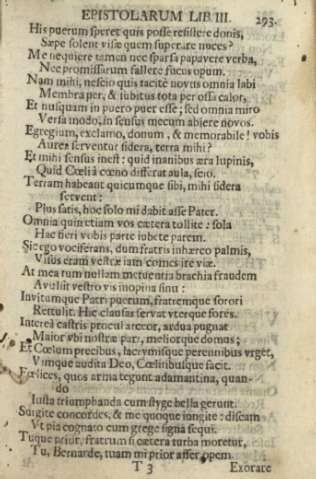 EPISTOLARUM LIB III. 293.
His puerum speret quis posse resistere donis,
Sæpe solent visæ quem superare nuces?
Me nequiere tamen nec sparsa papavere verba,
Nec promissarum fallere fucus opum.
Nam mihi, nescio quis tacitè novus omnia labi
Membra per, & subitus tota per ossa calor,
Et nusquam in puero puer esse; sed omnia miro
Versa modo, in sensus mecum abiere novos.
Egregium, exclamo, donum, & memorabile! vobis
Aurea serventur sidera, terra mihi?
Et mihi sensus inest: quid inanibus æra lupinis,
Quid Cœli à cœno differat aula, scio.
Terram habeant quicumque sibi, mihi sidera
servent:
Plus satis, hoc solo mi dabit asse Pater.
Omnia quin etiam vos cætera tollite: sola
Hac fieri vobis parte iubete parem.
Sic ego vociferans, dum fratris inhæreo palmis,
Visus eram vestræ iam comes ire viæ.
At mea tum nullam metuentia brachia fraudem
Avulsit vestro vis inopina sinu:
Invitumque Patri puerum, fratremque sorori
Rettulit. Hic clausas servat uterque fores.
Intereà castris procul arceor, ardua pugnat
Maior ubi nostræ pars, meliorque domus;
Et Cœlum precibus, lacrymisque perennibus urget,
Vimque audita Deo, Cœlitibusque facit.
Fœlices, quos arma tegunt adamantina, quan-
do
Iusta triumphanda cum styge bella gerunt.
Surgite concordes, & me quoque iungite: discam
Ut pia cognato cum grege signa sequi.
Tuque prior, fratrum si cætera turba moretur,
Tu, Bernarde, tuam mi prior affer opem.
T 3 Exorare